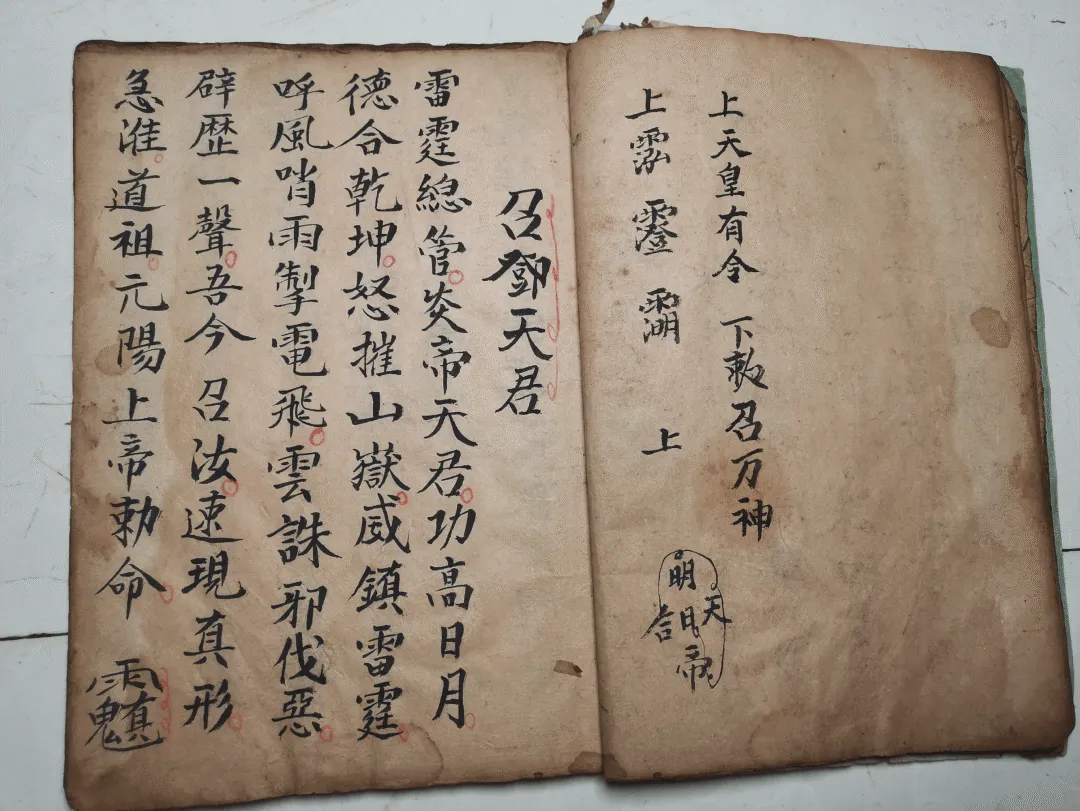 上天皇有令 下敕召万神
上 上
召鄧天君
雷霆総管炎帝天君功高日月
德合乾坤怒摧山嶽威鎮雷霆
呼風哨雨掣電飛雲誅邪伐惡
辟歷一聲吾今召汝速現真形
急准道祖元陽上帝勅命